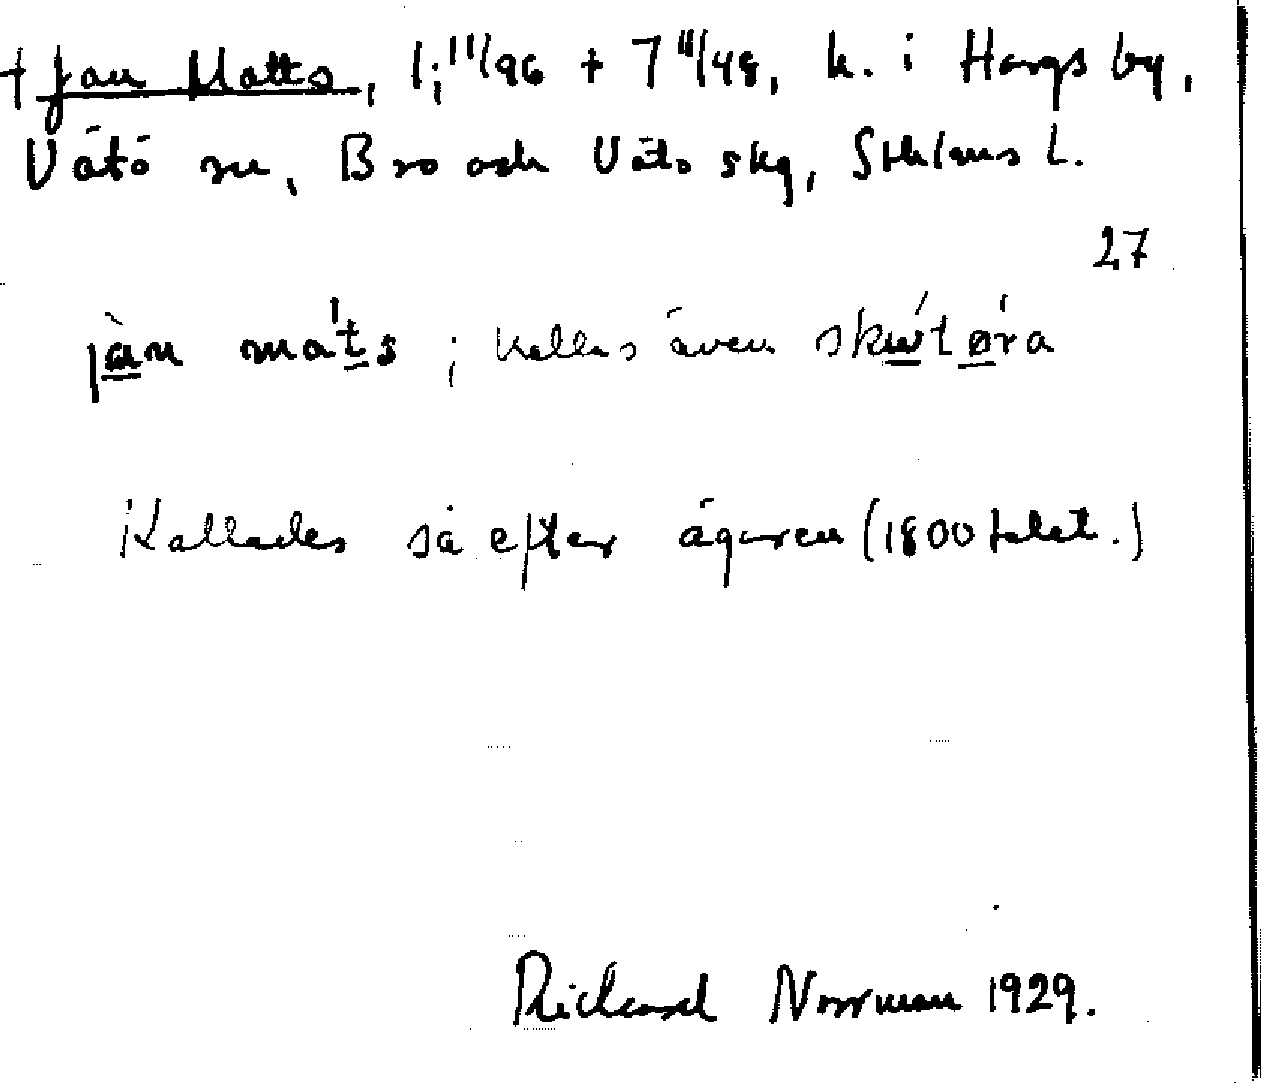 † Jan Matts, 1; 11/96 + 7 11/48, h. i Hargs by,
Vätö sn, Bro och Vätö skg, Sthlms L.
27
jàn mát̲s ; kallas även skútøra
Kallades så efter ägaren (1800 talet.)
Rickard Norrman 1929.